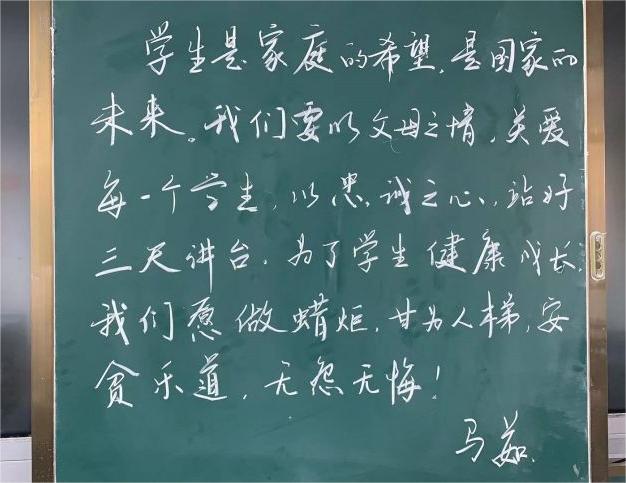 学生是家庭的希望,是国家的
未来。我们要以父母之情,关爱
每一个学生,以忠诚之心,站好
三尺讲台。为了学生健康成长,
我们愿做蜡炬,甘为人梯,安
贫乐道,无怨无悔!
马茹